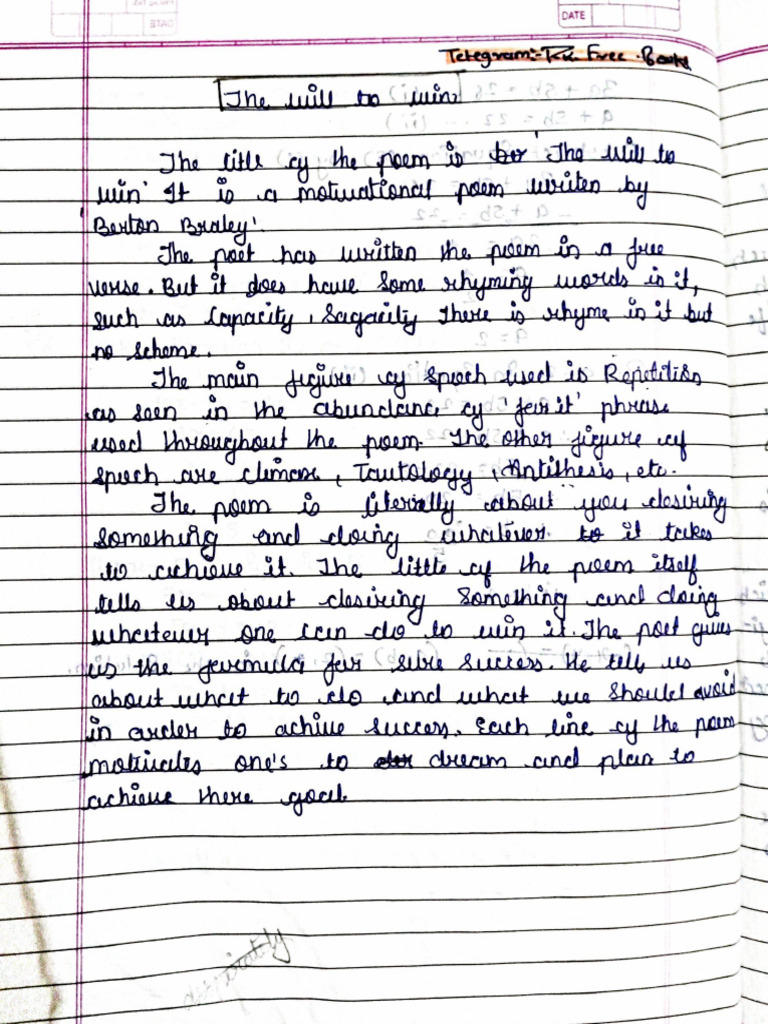 DATE
Telegram:- RK Free Books
The will to win
The title of the poem is 'The will to
win' It is a motivational poem writen by
'Berton Braley'.
The poet has written the poem in a free
verse. But it does have some rhyming words is it,
such as Capacity, Sagacity There is rhyme in it but
no scheme.
The main figure of speech used is Repetition
as seen in the abundance of 'for it' phrase
used throughout the poem. The other figure of
speech are climax, Tautology, Antithesis, etc.
The poem is literally about you desiring
something and doing whatever to it takes
to achieve it. The tittle of the poem itself
tells us about desiring something and doing
whatever one can do to win it. The poet gives
us the formula for sure success. He tell us
about what to do and what we should avoid
in order to achive success. Each line of the poem
motivates one's to dream and plan to
achieve there goal.